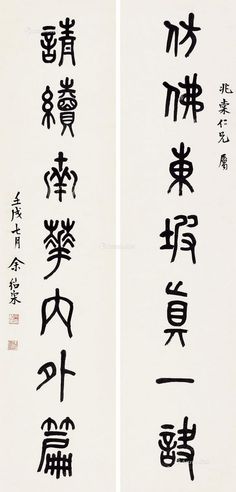 兆棠仁兄屬
仿佛東坡真一訣
請續南華內外篇
壬戌七月余紹宋